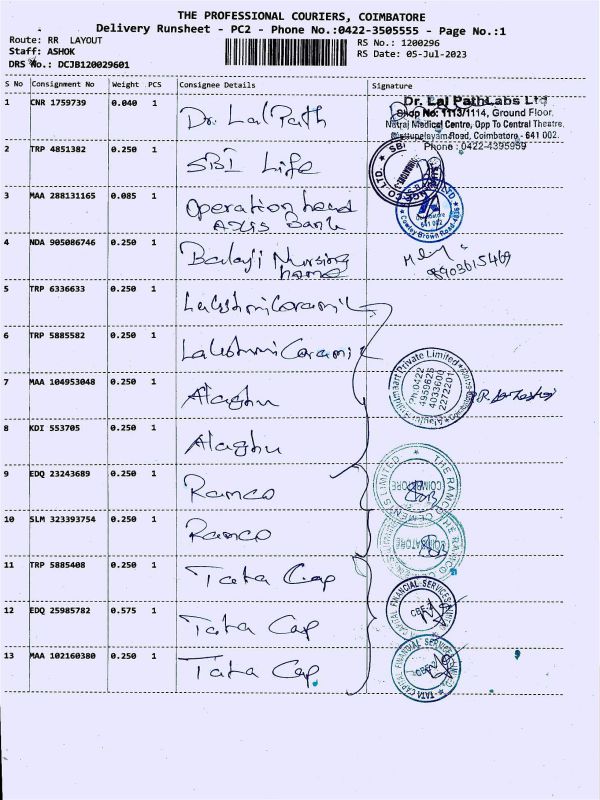 THE PROFESSIONAL COURIERS, COIMBATORE
Delivery Runsheet - PC2 - Phone No.:0422-3505555 - Page No.:1
Route: RR LAYOUT
RS No.: 1200296
Staff: ASHOK
RS Date: 05-Jul-2023
DRS No.: DCJB120029601
S No Consignment No Weight PCS Consignee Details Signature
1 CNR 1759739 0.040 1 Dr. Lal Path
Dr. Lal PathLabs Ltd
Shop No: 1113/1114, Ground Floor,
Natraj Medical Centre, Opp To Central Theatre,
Coimbatore - 641 002.
Phone : 0422-4395959
2 TRP 4851382 0.250 1 SBI Life
SBI
CO. LTD.
3 MAA 288131165 0.085 1 Operation head
Axis Bank
Cowley Brown Road
4 NDA 905086746 0.250 1 Balaji Nursing
home
8903615469
5 TRP 6336633 0.250 1 Lakshmi Ceramic
6 TRP 5885582 0.250 1 Lakshmi Ceramic
7 MAA 104953048 0.250 1 Alaghu
Private Limited
Ph:0422
4959626
4033600
2272201
8 KDI 553705 0.250 1 Alaghu
9 EDQ 23243689 0.250 1 Ramco
THE RAMCO CEMENTS LIMITED
COIMBATORE
10 SLM 323393754 0.250 1 Ramco
THE RAMCO CEMENTS LIMITED
COIMBATORE
11 TRP 5885408 0.250 1 Tata Cap
12 EDQ 25985782 0.575 1 Tata Cap
TATA CAPITAL FINANCIAL SERVICES LIMITED
CBE-2
13 MAA 102160380 0.250 1 Tata Cap
TATA CAPITAL FINANCIAL SERVICES LIMITED
CBE-2